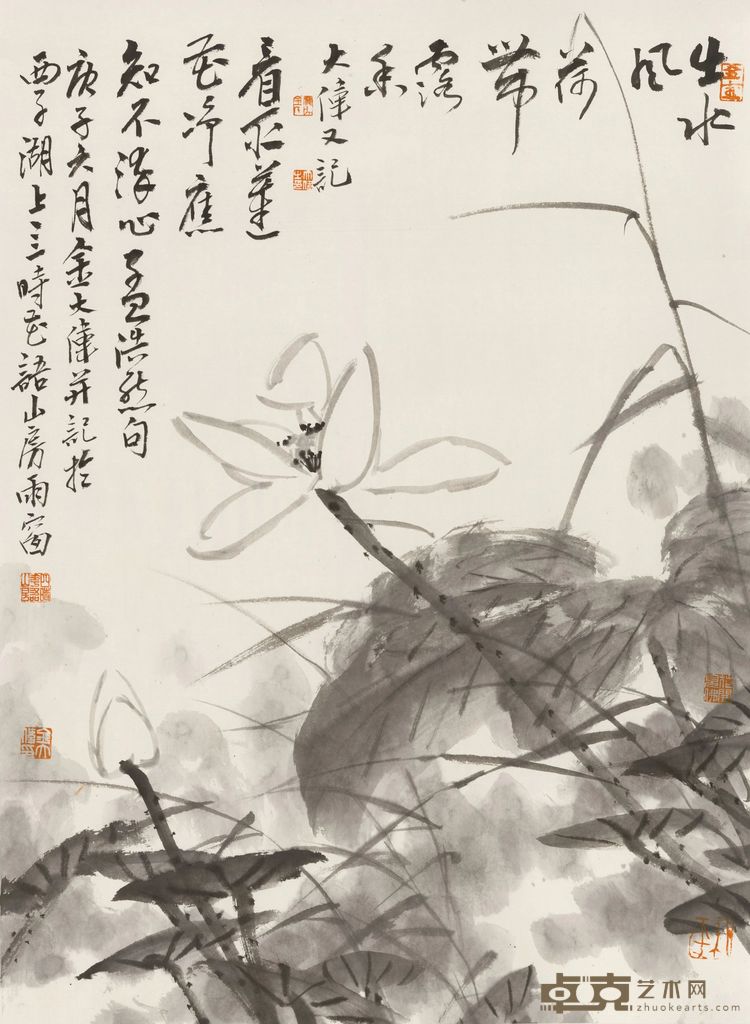 出水
風
荷
帶
露
香
大偉又記
看取蓮
花淨應
知不染心孟浩然句
庚子六月金大偉并記於
西子湖上三時花語山房雨窗
卓克艺术网
zhuokearts.com